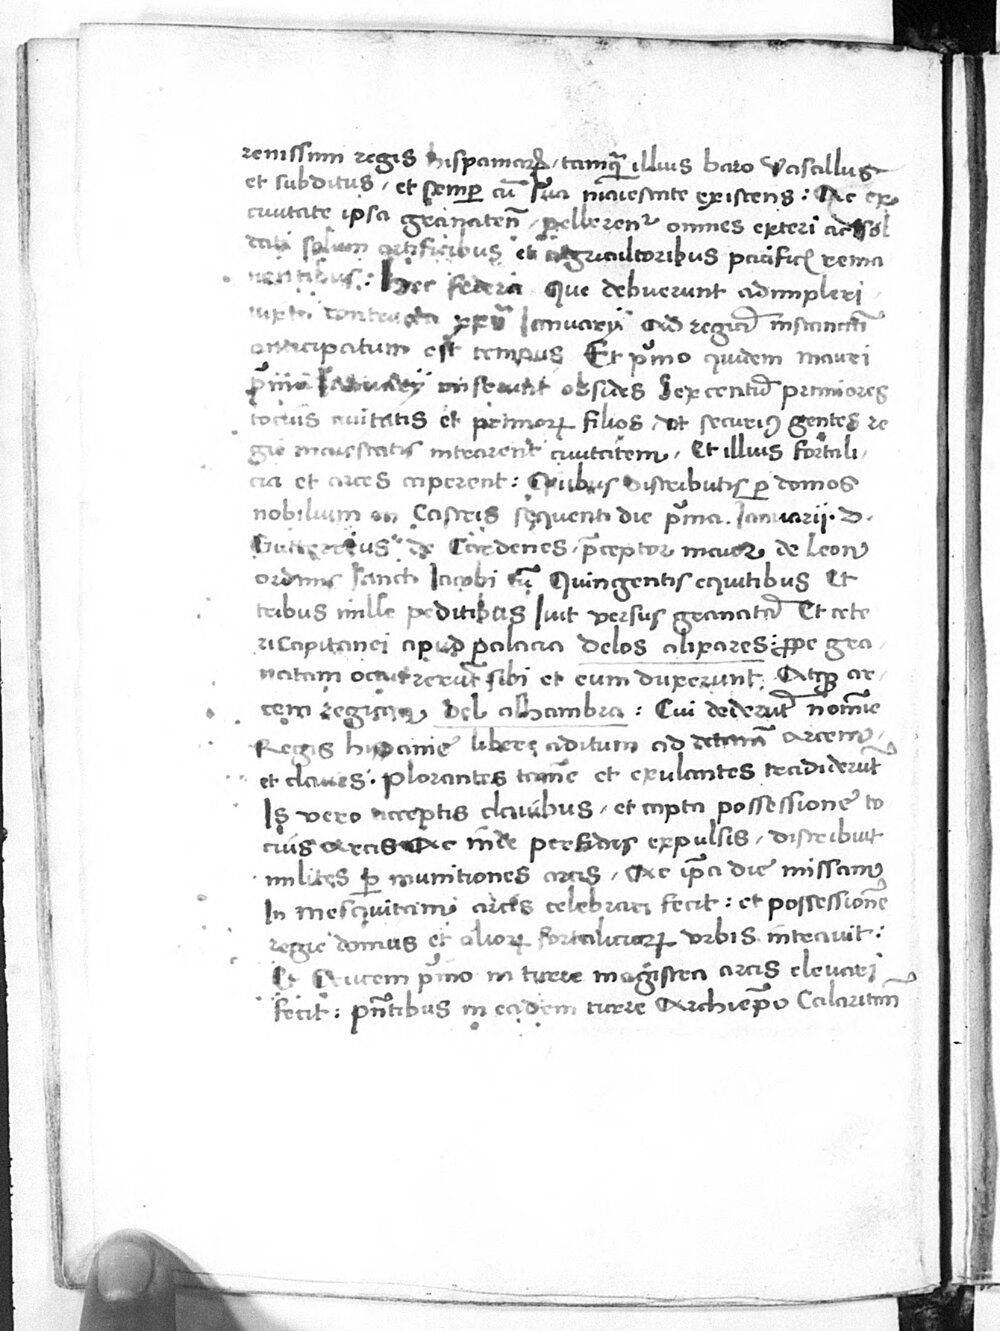 renissimi regis hispaniarꝝ, tamꝗ̃ illius baro vasallus
et subditus, et semꝑ cũ sua maiestate existens: Ac ex
ciuitate ipsa granateñ, pellerent᷑ omnes exteri ac sol
dati solum artificibus et agricultoribus pacifice rema
nentibus: Hec federa Que debuerunt adimpleri,
iuxta contenta xxv Ianuarij Ad regiã instanciã
anticipatum est tempus Et pͥmo quidem mauri
pͥma Ianuarij miserunt obsides sexcentũ primiores
tocius ciuitatis et primorꝝ filios, ut securiꝰ gentes re
gie maiestatis intrarent ciuitatem, Et illius fortali,
cia et arces caperent: Quibus distributis ꝑ domos
nobilium in Castris sequenti die pͥma. Ianuarij. d.
Gutterrius de Cardenes, p̃ceptor maior de leon
ordinis sancti Iacobi cũ Quingentis equitibus Et
tribus mille peditibus iuit versus granatã Et cete
ri Capitanei apud palacia delos alixares: ꝓpe gra,
natam occurrerũt sibi et eum duxerunt, Atqꝫ ar,
cem regiam del alhambra: Cui dederũt nomĩe
Regis hispanie liberẽ aditum ad arcem,
et claues. plorantes tamẽ et exulantes tradiderũt
Is vero acceptis clauibus, et capta possessione to
cius arcis Ac ĩnde perfidis expulsis, distribuit
milites ꝑ munitiones arcis, Ac ip̃a die missam
In mesquitam arcis celebrari fecit: et possessionẽ
regie domus et aliorꝝ fortaliciorꝝ vrbis intrauit:
Et Crucem pͥmo in turre magistra arcis eleuari
fecit: pñtibus in eadem turre Archiep̃o Calaritañ